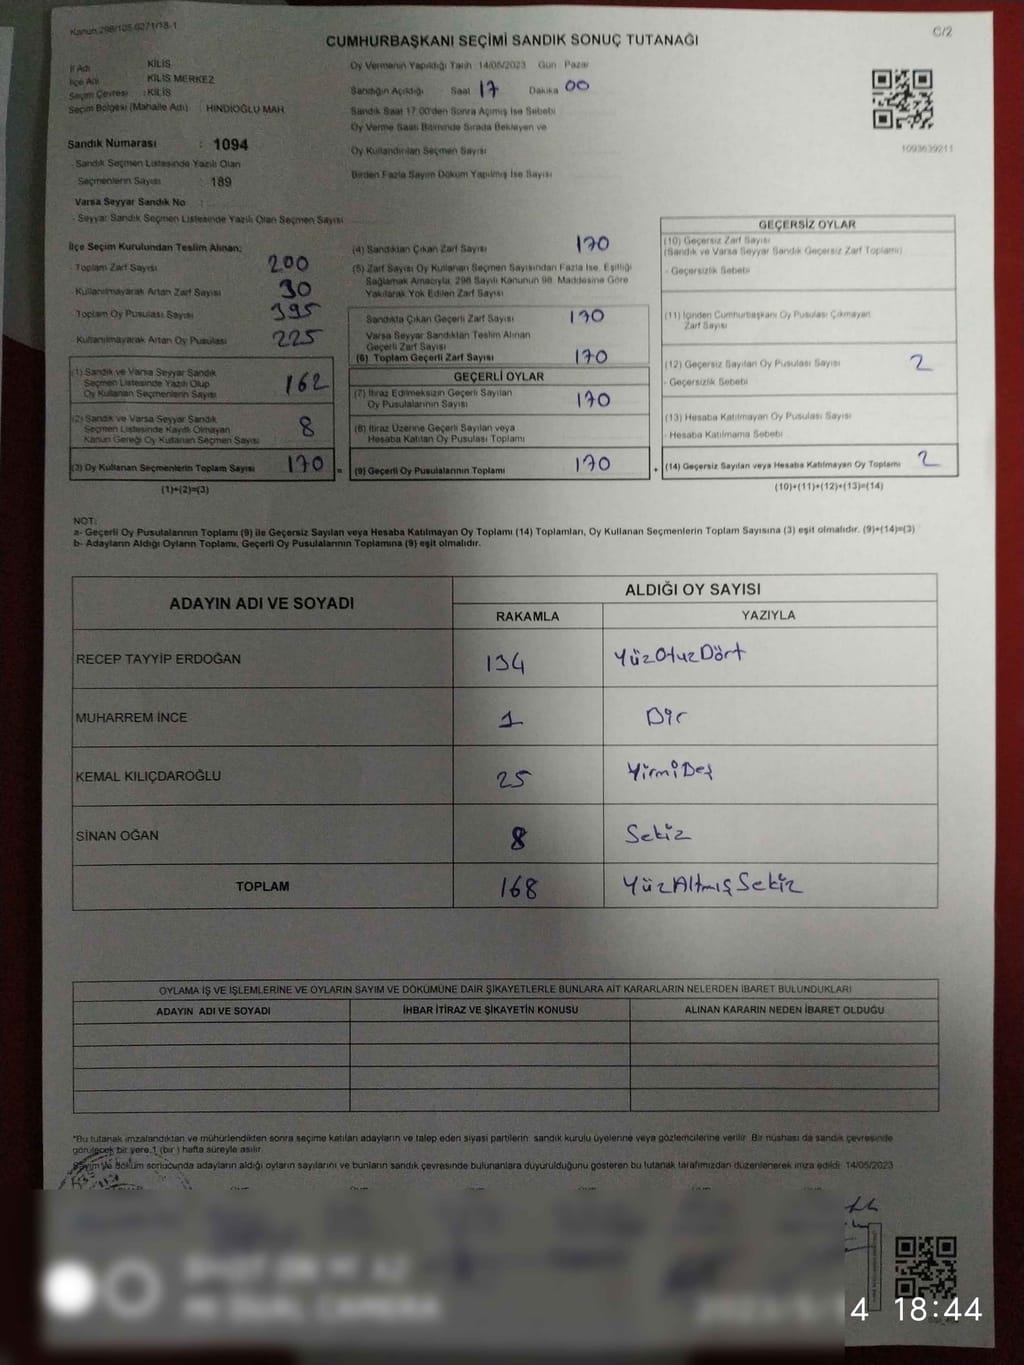 Kanun 298/105,6271/18-1
C/2
CUMHURBAŞKANI SEÇİMİ SANDIK SONUÇ TUTANAĞI
İl Adı : KİLİS
İlçe Adı : KİLİS MERKEZ
Seçim Çevresi : KİLİS
Seçim Bölgesi (Mahalle Adı) : HİNDİOĞLU MAH
Sandık Numarası : 1094
- Sandık Seçmen Listesinde Yazılı Olan
Seçmenlerin Sayısı : 189
Varsa Seyyar Sandık No :
- Seyyar Sandık Seçmen Listesinde Yazılı Olan Seçmen Sayısı
Oy Vermenin Yapıldığı Tarih : 14/05/2023 Gün Pazar
Sandığın Açıldığı Saat 17 Dakika 00
Sandık Saat 17:00'den Sonra Açımış İse Sebebi
Oy Verme Saati Bitiminde Sırada Bekleyen ve
Oy Kullandırılan Seçmen Sayısı
Birden Fazla Sayım Döküm Yapılmış İse Sayısı
1093639211
İlçe Seçim Kurulundan Teslim Alınan;
- Toplam Zarf Sayısı 200
- Kullanılmayarak Artan Zarf Sayısı 30
- Toplam Oy Pusulası Sayısı 395
- Kullanılmayarak Artan Oy Pusulası 225
(1) Sandık ve Varsa Seyyar Sandık
Seçmen Listesinde Yazılı Olup
Oy Kullanan Seçmenlerin Sayısı 162
(2) Sandık ve Varsa Seyyar Sandık
Seçmen Listesinde Kayıtlı Olmayan
Kanun Gereği Oy Kullanan Seçmen Sayısı 8
(3) Oy Kullanan Seçmenlerin Toplam Sayısı 170 =
(1)+(2)=(3)
(4) Sandıktan Çıkan Zarf Sayısı 170
(5) Zarf Sayısı Oy Kullanan Seçmen Sayısından Fazla İse, Eşitliği
Sağlamak Amacıyla, 298 Sayılı Kanunun 98. Maddesine Göre
Yakılarak Yok Edilen Zarf Sayısı
Sandıkta Çıkan Geçerli Zarf Sayısı 170
Varsa Seyyar Sandıktan Teslim Alınan
Geçerli Zarf Sayısı
(6) Toplam Geçerli Zarf Sayısı 170
GEÇERLİ OYLAR
(7) İtiraz Edilmeksizin Geçerli Sayılan
Oy Pusulalarının Sayısı 170
(8) İtiraz Üzerine Geçerli Sayılan veya
Hesaba Katılan Oy Pusulası Toplamı
(9) Geçerli Oy Pusulalarının Toplamı 170 +
GEÇERSİZ OYLAR
(10) Geçersiz Zarf Sayısı
(Sandık ve Varsa Seyyar Sandık Geçersiz Zarf Toplamı)
- Geçersizlik Sebebi
(11) İçinden Cumhurbaşkanı Oy Pusulası Çıkmayan
Zarf Sayısı
(12) Geçersiz Sayılan Oy Pusulası Sayısı 2
- Geçersizlik Sebebi
(13) Hesaba Katılmayan Oy Pusulası Sayısı
- Hesaba Katılmama Sebebi
(14) Geçersiz Sayılan veya Hesaba Katılmayan Oy Toplamı 2
(10)+(11)+(12)+(13)=(14)
NOT:
a- Geçerli Oy Pusulalarının Toplamı (9) ile Geçersiz Sayılan veya Hesaba Katılmayan Oy Toplamı (14) Toplamları, Oy Kullanan Seçmenlerin Toplam Sayısına (3) eşit olmalıdır. (9)+(14)=(3)
b- Adayların Aldığı Oyların Toplamı, Geçerli Oy Pusulalarının Toplamına (9) eşit olmalıdır.
ADAYIN ADI VE SOYADI
ALDIĞI OY SAYISI
RAKAMLA YAZIYLA
RECEP TAYYİP ERDOĞAN 134 YüzOtuzDört
MUHARREM İNCE 1 Bir
KEMAL KILIÇDAROĞLU 25 YirmiBeş
SİNAN OĞAN 8 Sekiz
TOPLAM 168 YüzAltmışSekiz
OYLAMA İŞ VE İŞLEMLERİNE VE OYLARIN SAYIM VE DÖKÜMÜNE DAİR ŞİKAYETLERLE BUNLARA AİT KARARLARIN NELERDEN İBARET BULUNDUKLARI
ADAYIN ADI VE SOYADI İHBAR İTİRAZ VE ŞİKAYETİN KONUSU ALINAN KARARIN NEDEN İBARET OLDUĞU
*Bu tutanak imzalandıktan ve mühürlendikten sonra seçime katılan adayların ve talep eden siyasi partilerin sandık kurulu üyelerine veya gözlemcilerine verilir. Bir nüshası da sandık çevresinde
görülecek bir yere 1 (bir) hafta süreyle asılır.
Sayım ve döküm sonucunda adayların aldığı oyların sayılarını ve bunların sandık çevresinde bulunanlara duyurulduğunu gösteren bu tutanak tarafımızdan düzenlenerek imza edildi. 14/05/2023
4 18:44